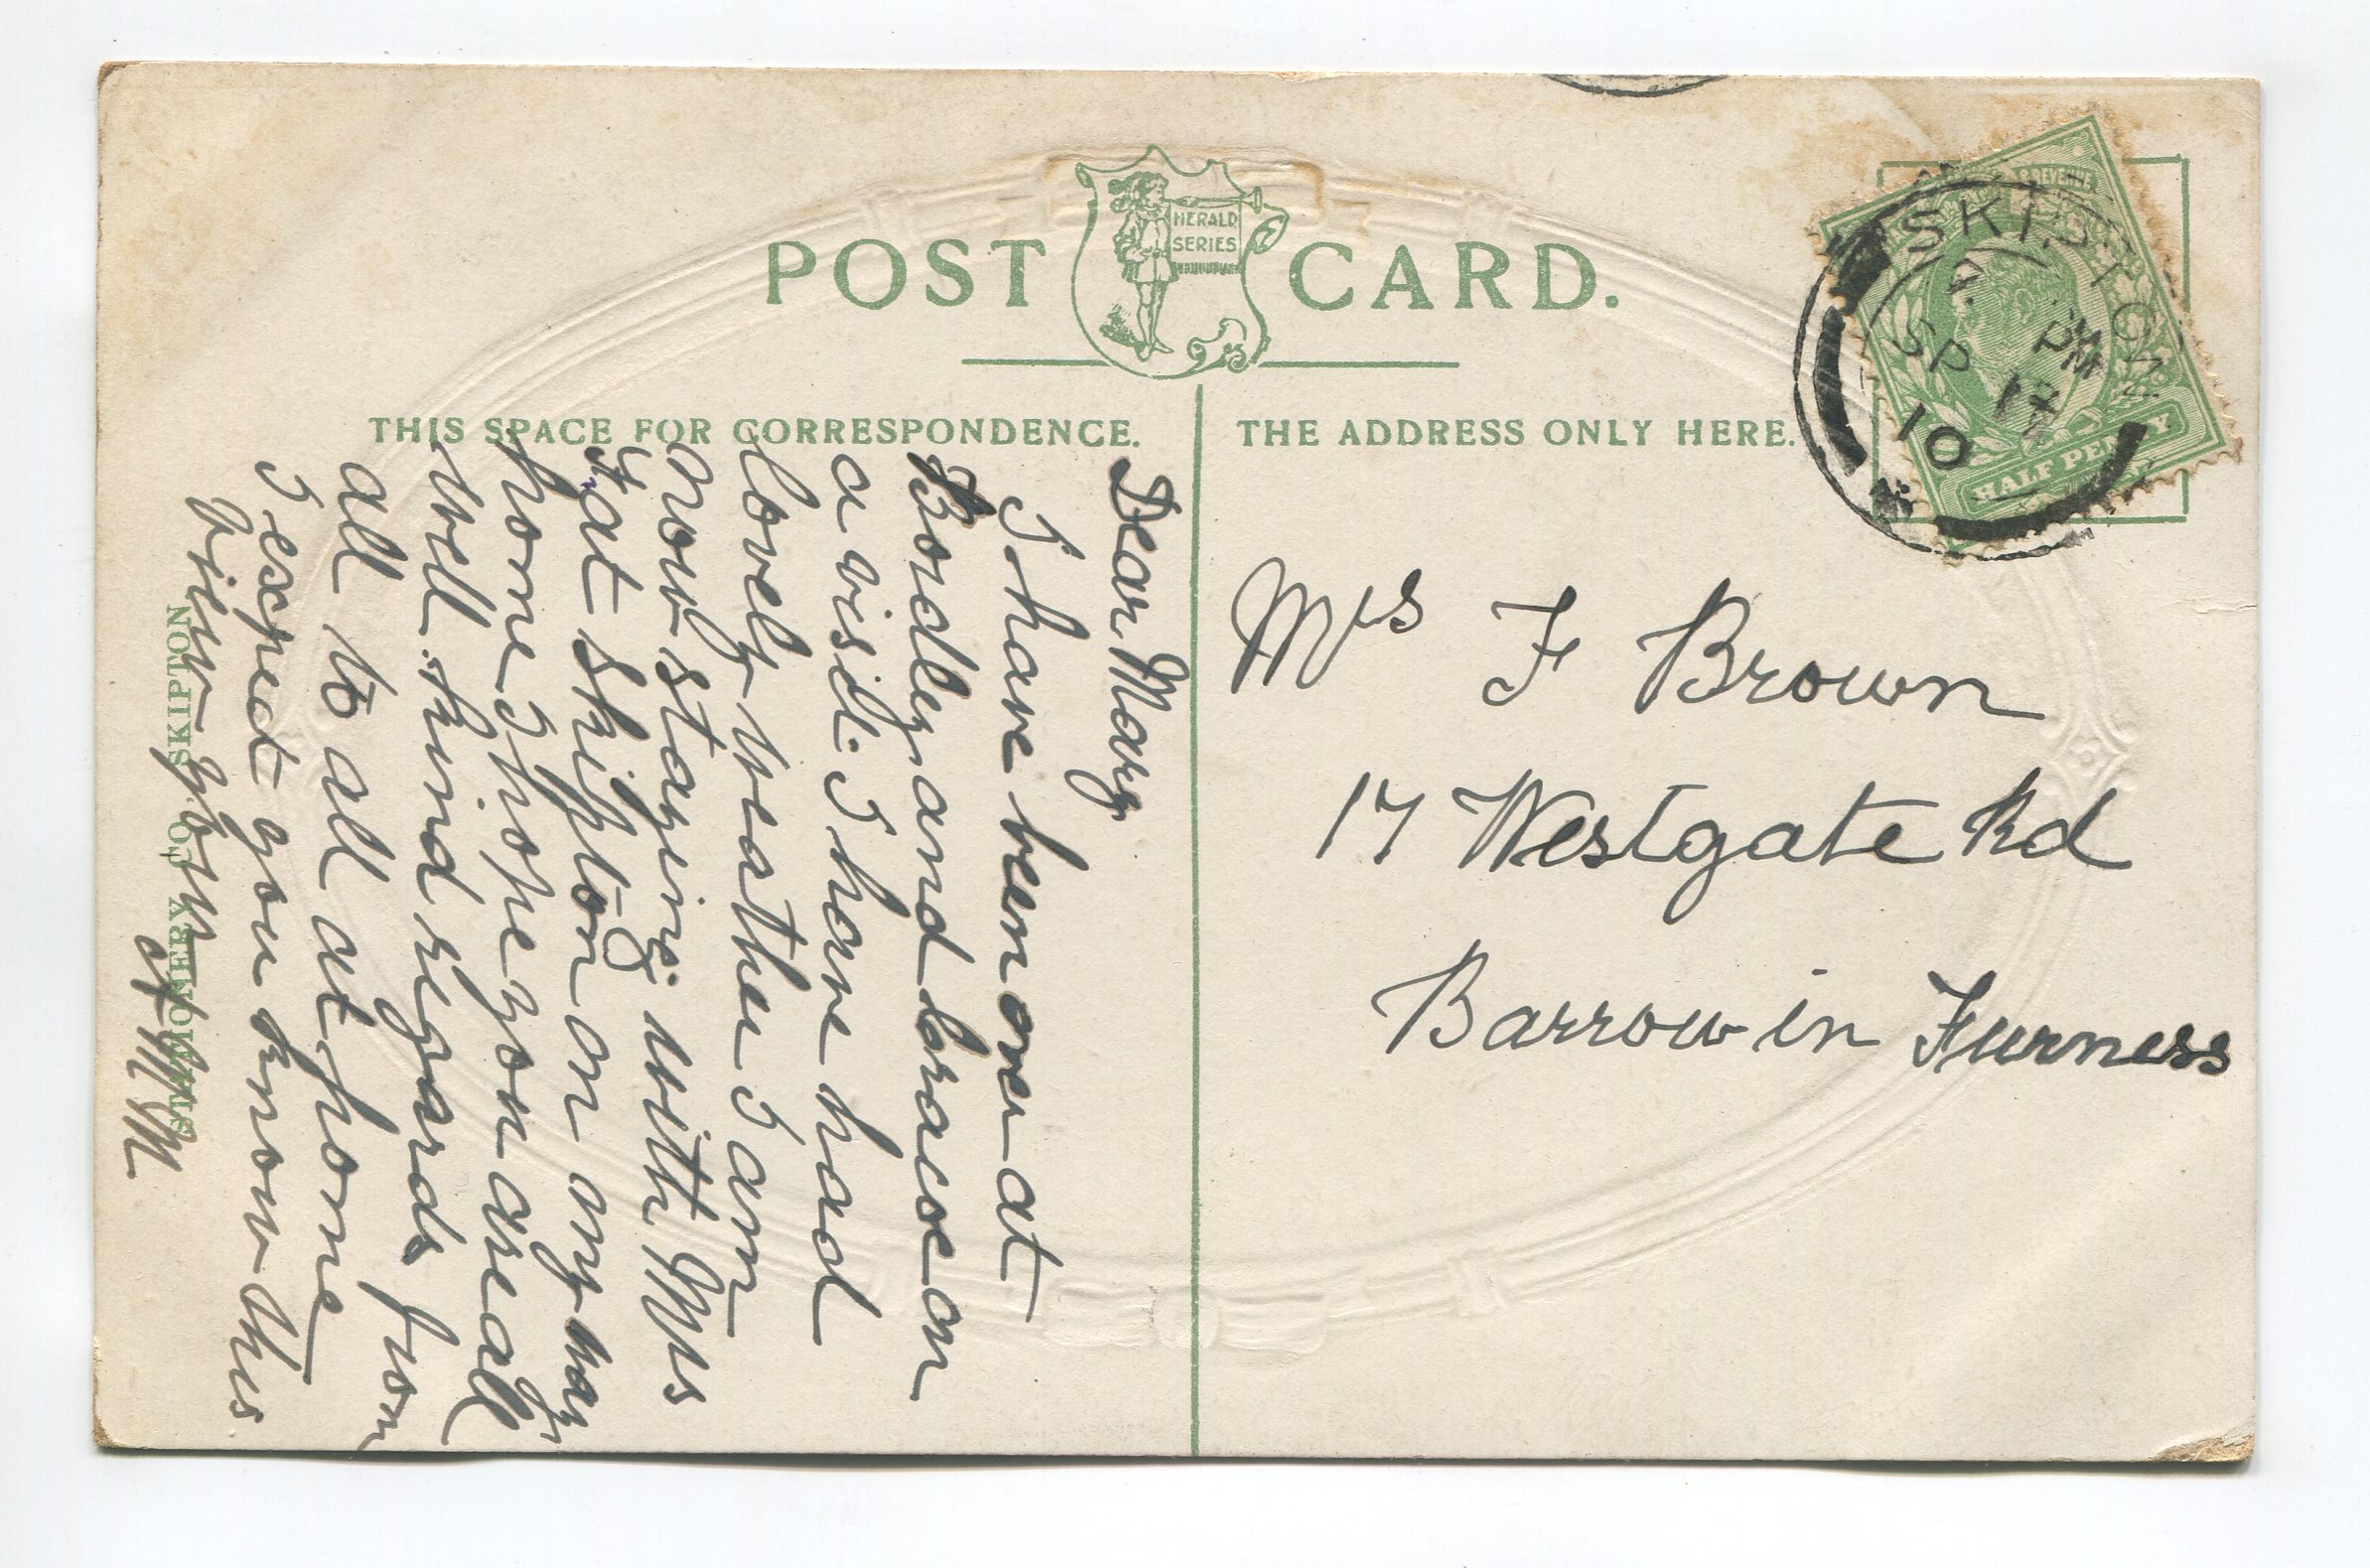 POST CARD.
HERALD
SERIES
THIS SPACE FOR CORRESPONDENCE.
THE ADDRESS ONLY HERE.
SKIPTON
PM
SP 17
10
HALF PENNY
Mrs F Brown
17 Westgate Rd
Barrow in Furness
Dear Mary
I have been over at
Bordley and because on
a visit. I have had
lovely weather I am
now staying with Mrs
at Skipton on my way
home I hope you are all
well. kind regards from
all to all at home
I expect you know this
view yours
M M
STATIONERY CO. SKIPTON